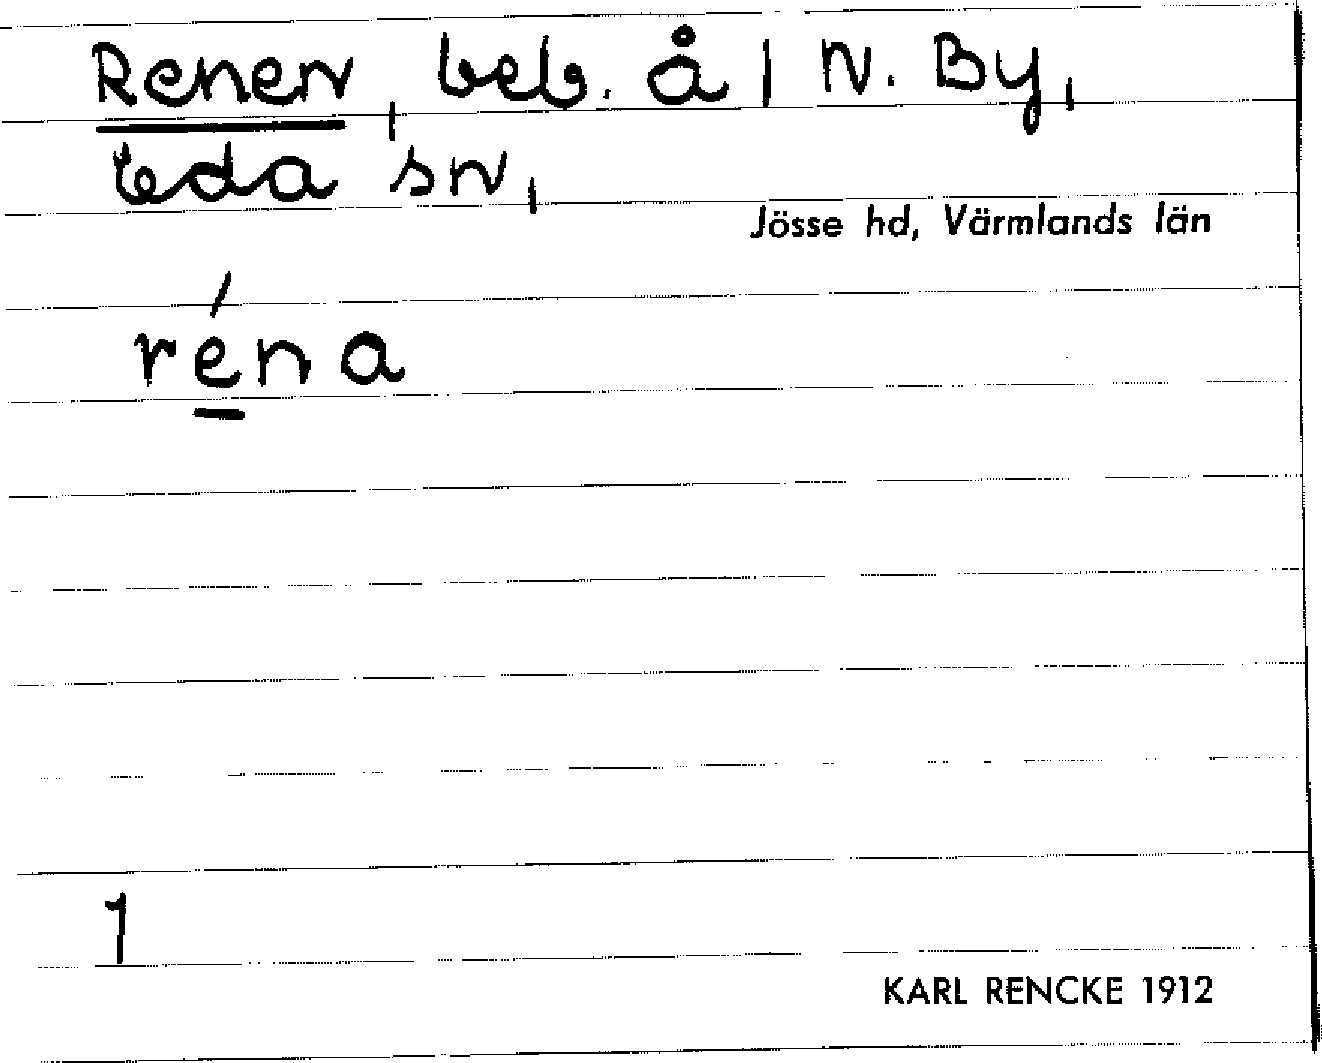 Renen, beb. å 1 N. By,
Eda sn,
Jösse hd, Värmlands län
réna
1
KARL RENCKE 1912